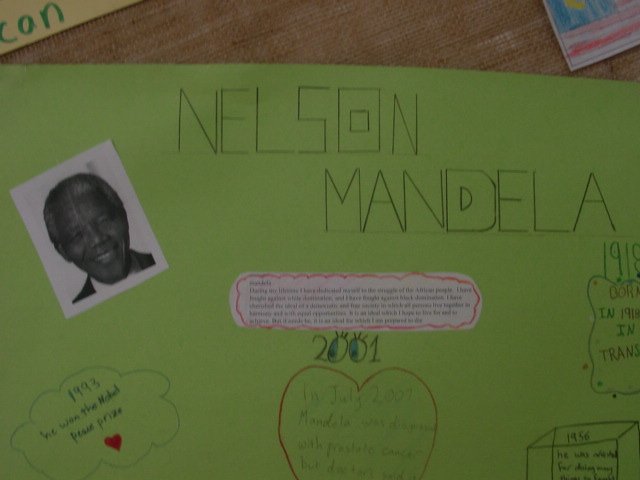 con
NELSON
MANDELA
mandela
During my lifetime I have dedicated myself to the struggle of the African people. I have
fought against white domination, and I have fought against black domination. I have
cherished the ideal of a democratic and free society in which all persons live together in
harmony and with equal opportunities. It is an ideal which I hope to live for and to
achieve. But if needs be, it is an ideal for which I am prepared to die.
2001
1918
BORN
IN 1918
IN
TRANS
1993
he won the Nobel
peace prize
In July 2001
Mandela was diagnose
with prostate cancer
but doctors said
1956
he was arrested
for doing many